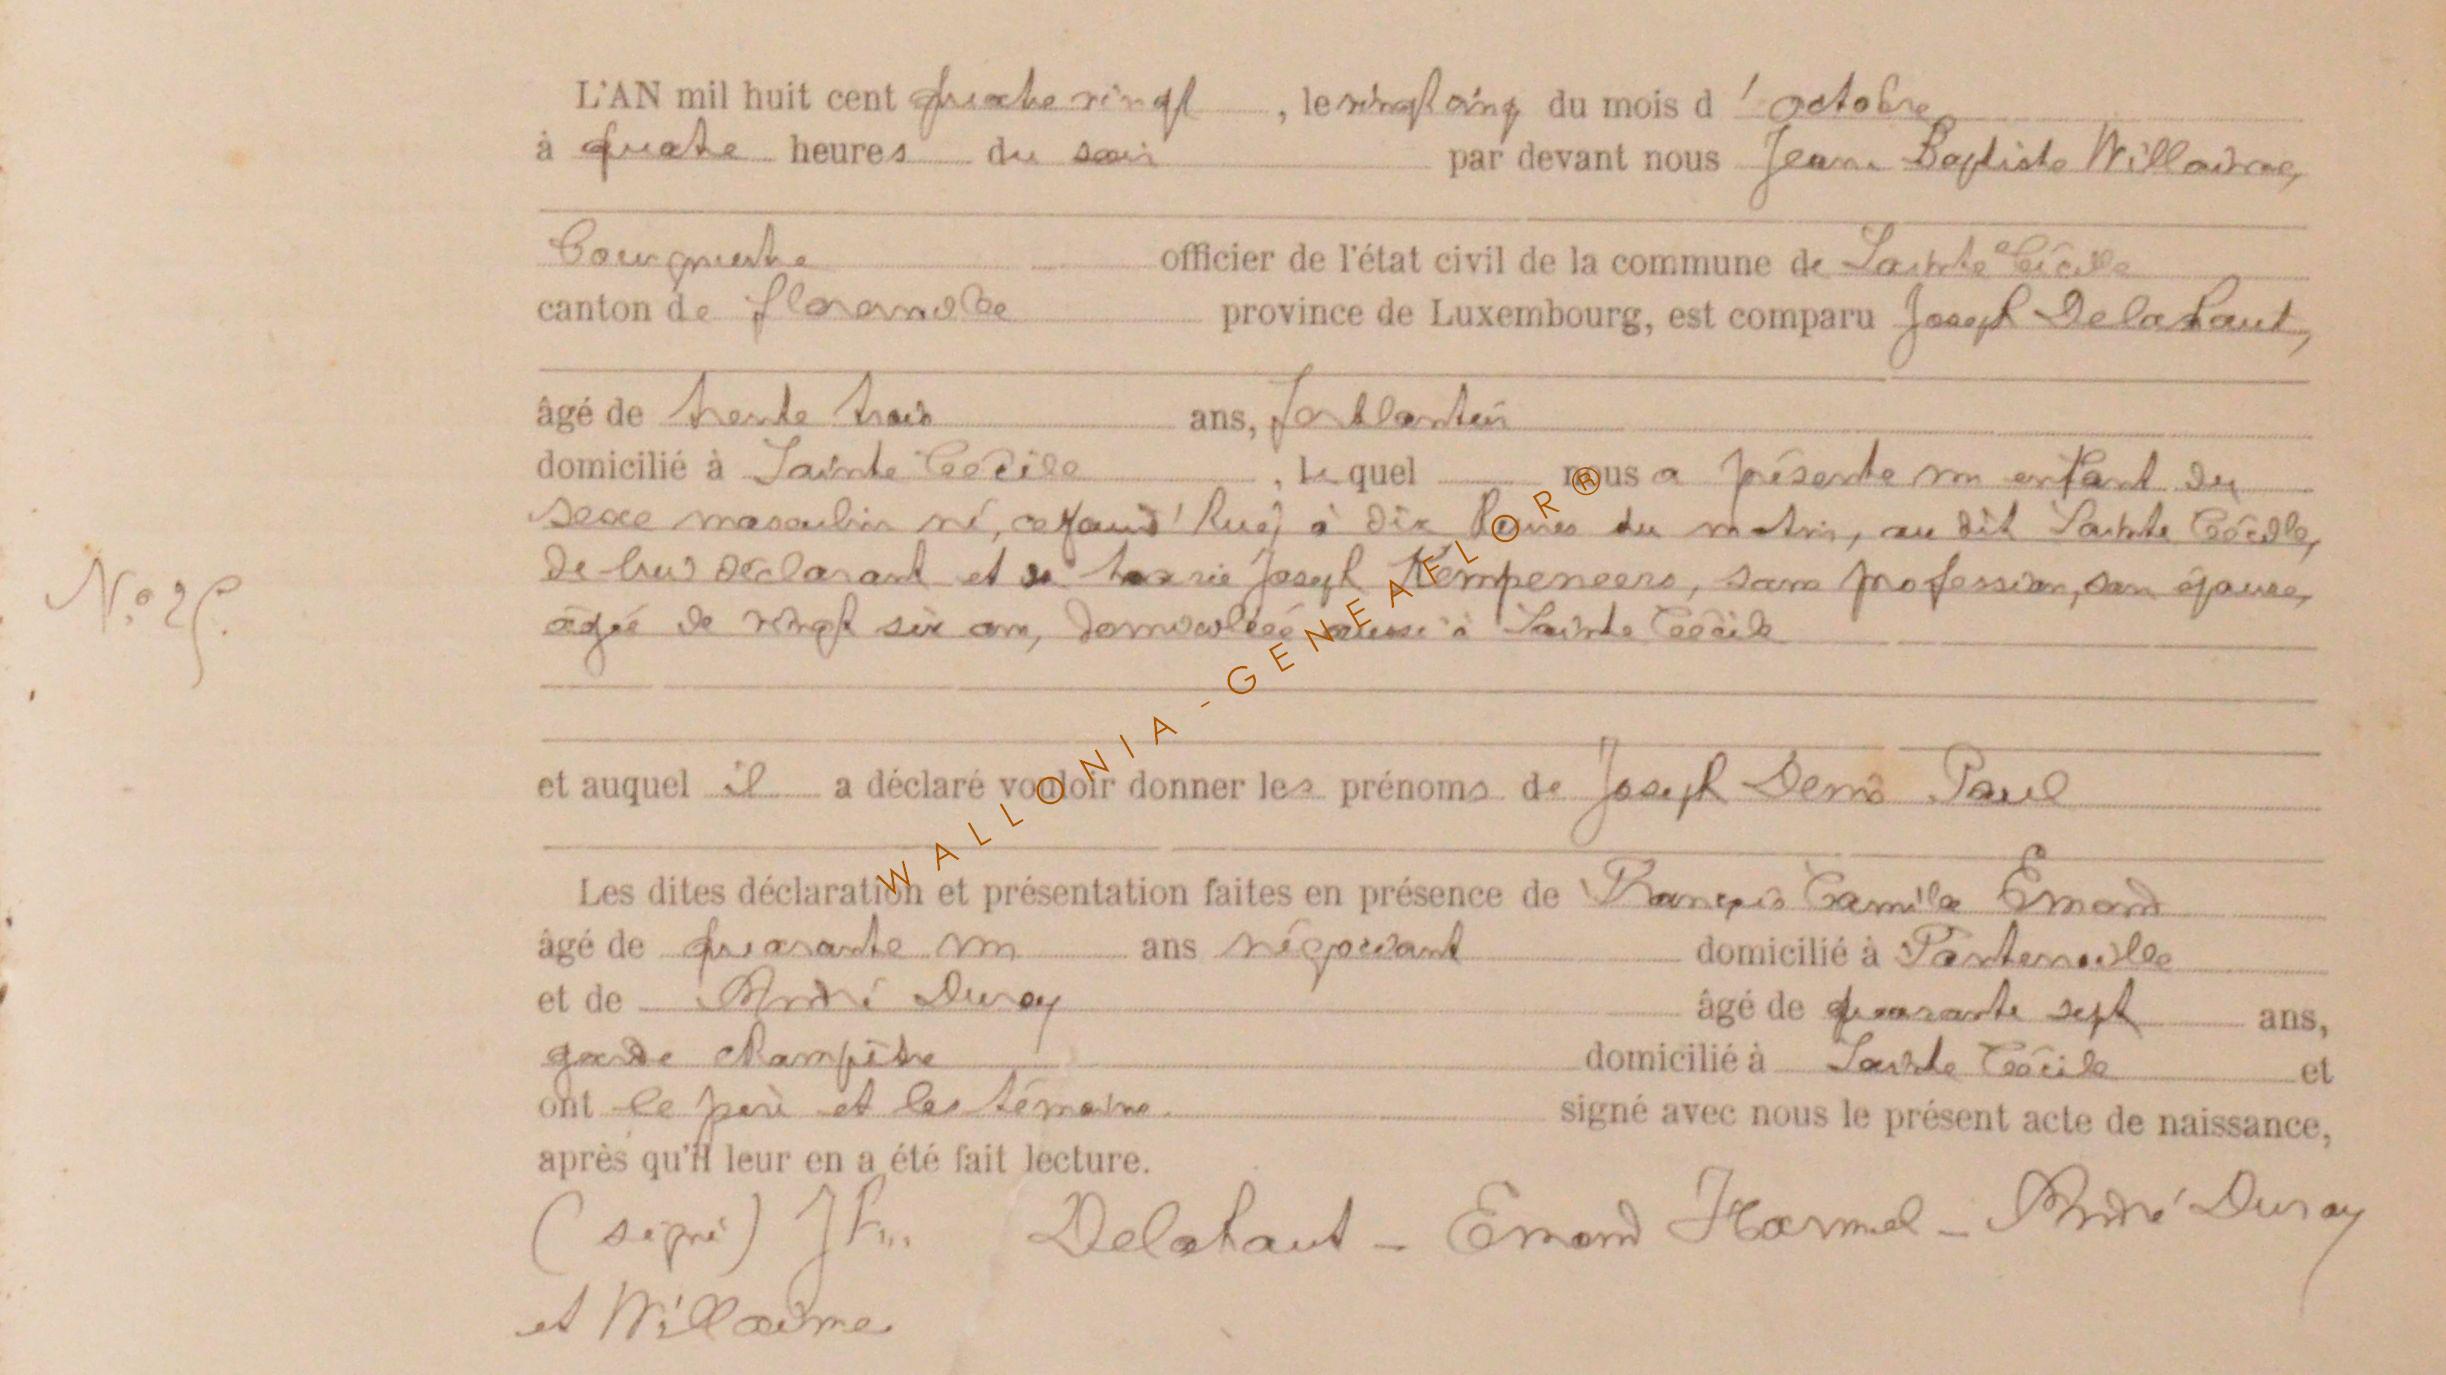 L'AN mil huit cent quatre vingt , le vingt cinq du mois d'octobre
à quatre heures du soir par devant nous Jean Baptiste Willaime,
Bourgmestre officier de l'état civil de la commune de Sainte Cécile
canton de florenville province de Luxembourg, est comparu Joseph Delahaut,
âgé de trente trois ans,
domicilié à Sainte Cécile , lequel nous a présenté un enfant du
sexe masculin né, à dix heures du matin, au dit Sainte Cécile,
de lui déclarant et de Joseph Kempeneers, sans profession, son épouse,
âgée de vingt six ans, domiciliée aussi à Sainte Cécile
N.° 25.
et auquel il a déclaré vouloir donner les prénoms de Joseph Denis Paul
Les dites déclaration et présentation faites en présence de François Camille Emond
âgé de quarante un ans négociant domicilié à
et de André Duroy âgé de quarante sept ans,
garde champêtre domicilié à Sainte Cécile et
ont le père et les témoins signé avec nous le présent acte de naissance,
après qu'il leur en a été fait lecture.
(signé) Jh... Delahaut - Emond Harmel - André Duroy
et Willaime
WALLONIA-GENEAFLOR®